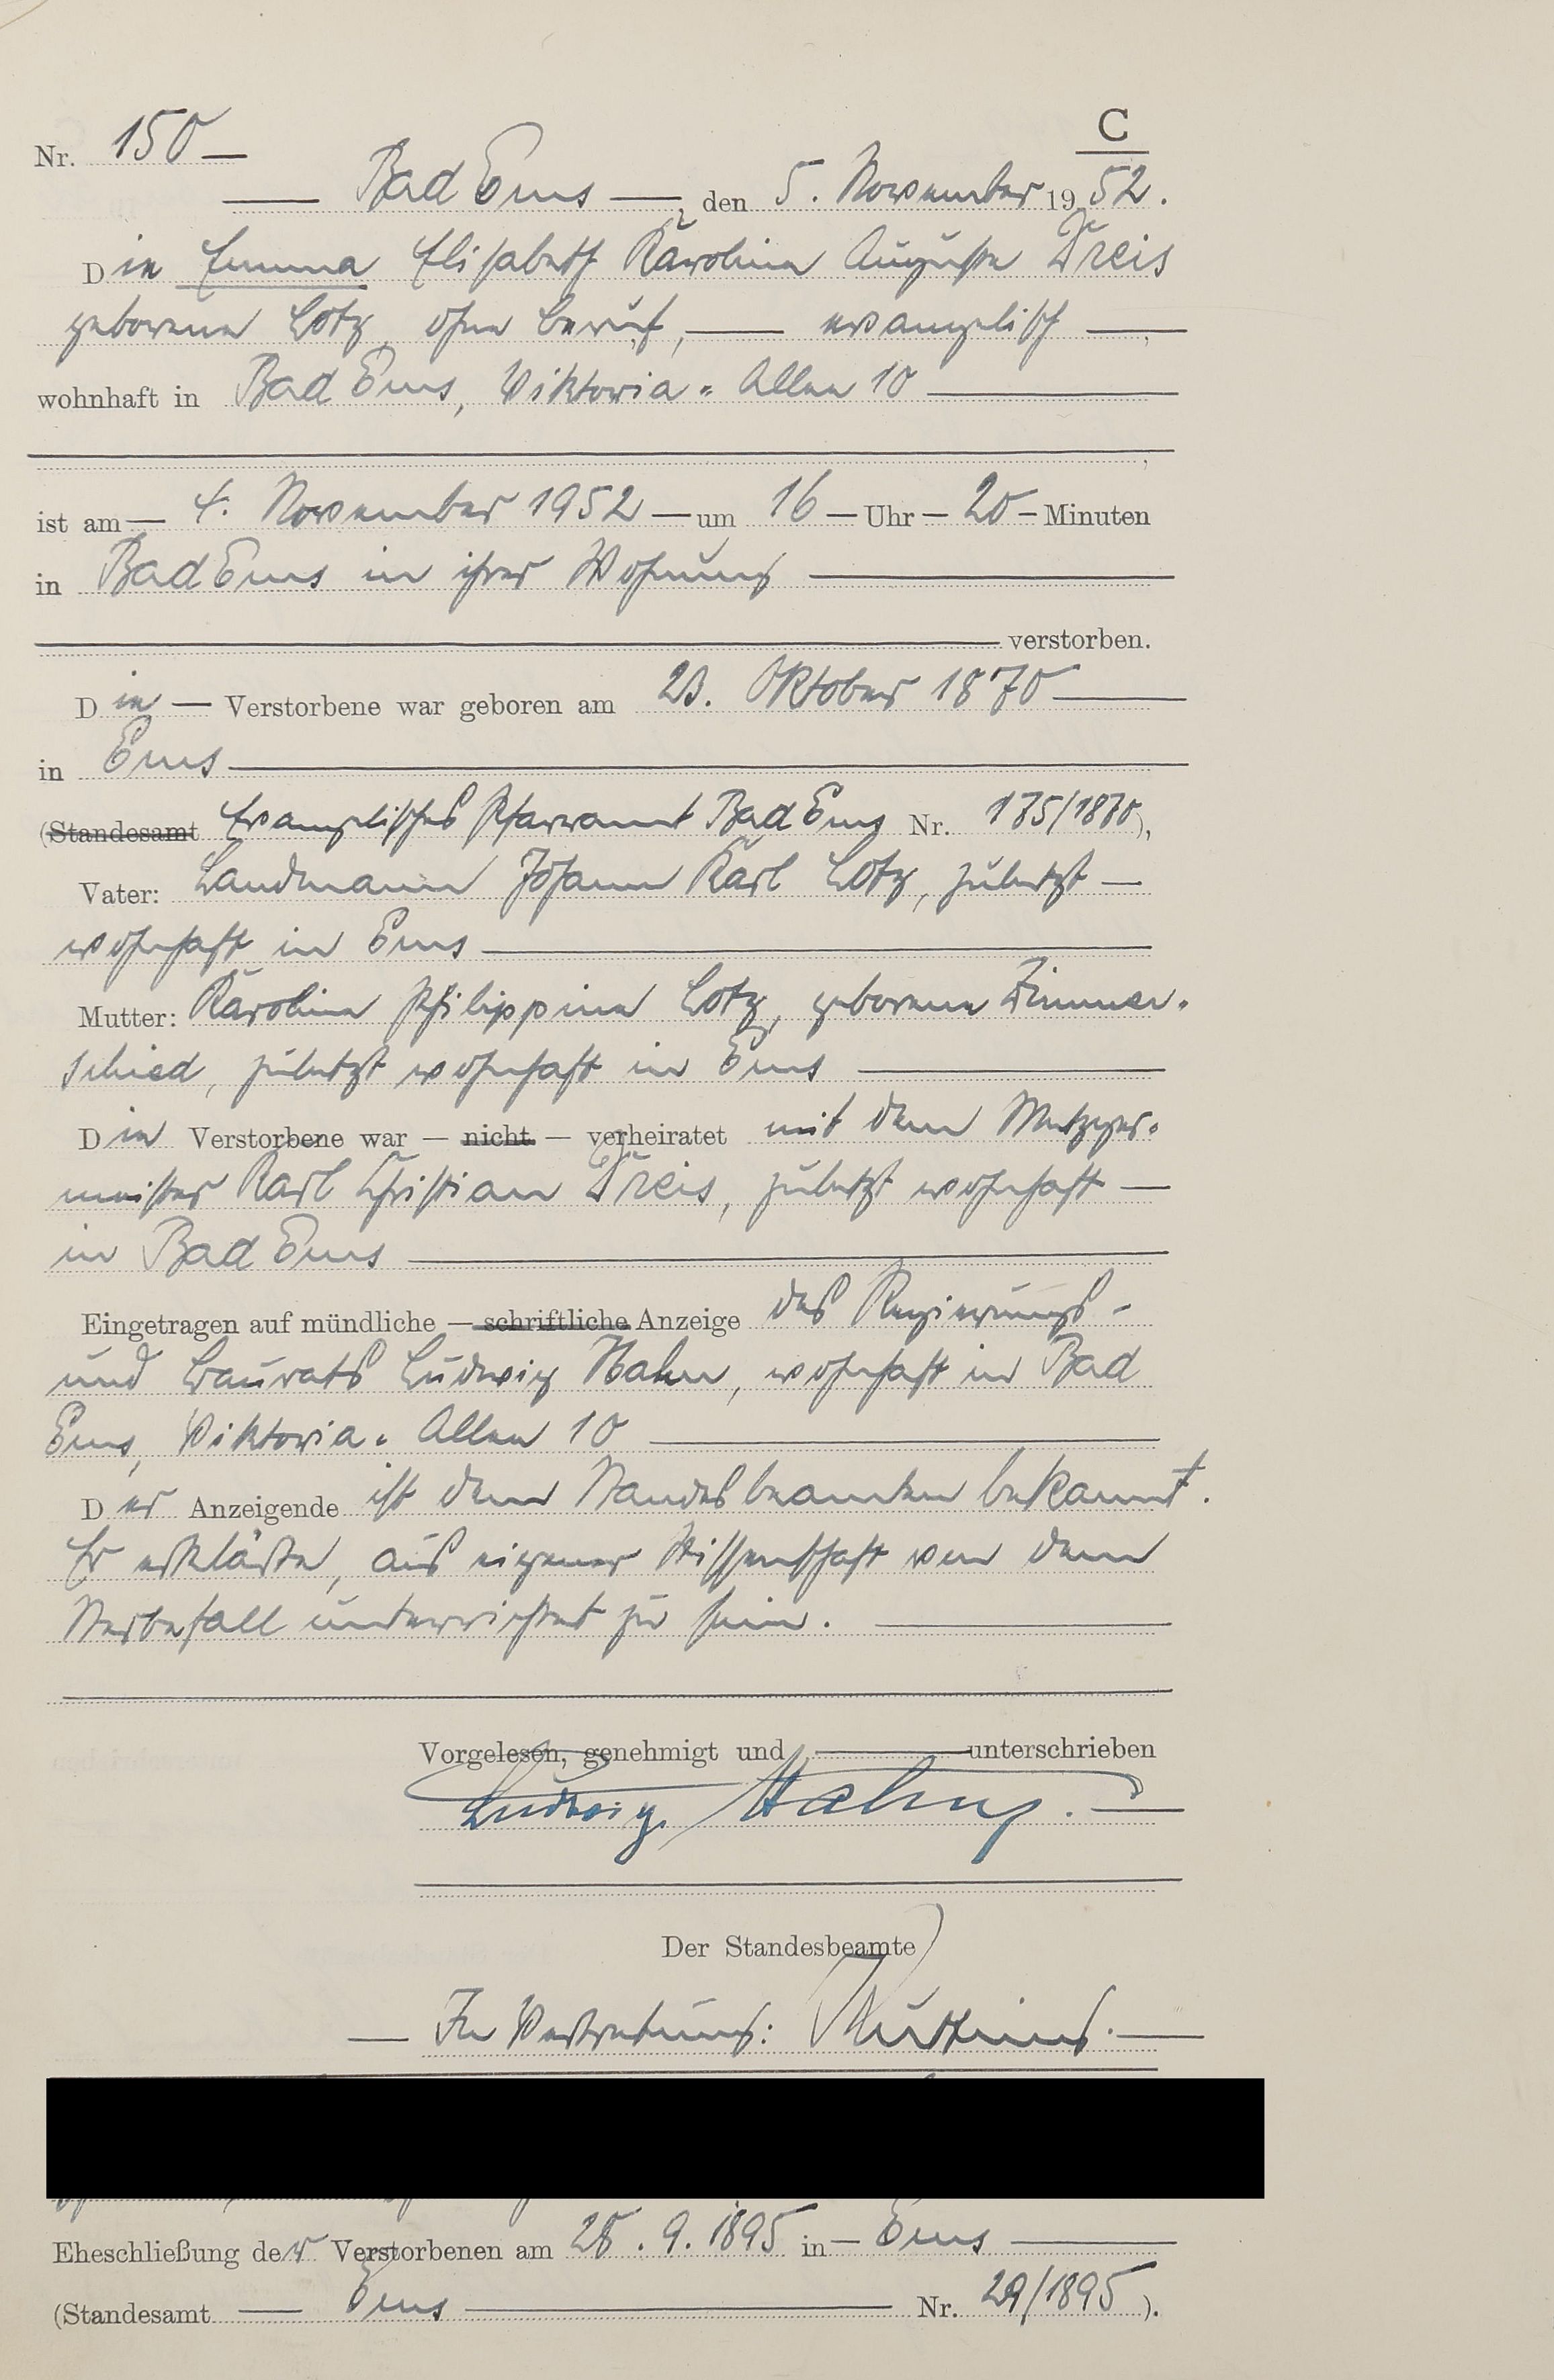 C
Nr. 150
Bad Ems, den 5. November 1952.
Die Emma Elisabeth Karoline Auguste Dreis
geborene Lotz, ohne Beruf, evangelisch,
wohnhaft in Bad Ems, Viktoria-Allee 10
ist am 4. November 1952 um 16 Uhr 20 Minuten
in Bad Ems in ihrer Wohnung
verstorben.
Die Verstorbene war geboren am 23. Oktober 1870
in Ems
(Standesamt Evangelisches Pfarramt Bad Ems Nr. 175/1870),
Vater: Landmann Johann Karl Lotz, zuletzt
wohnhaft in Ems
Mutter: Karoline Philippine Lotz, geborene Zimmer-
schied, zuletzt wohnhaft in Ems
Die Verstorbene war — nicht — verheiratet mit dem Metzger-
meister Karl Christian Dreis, zuletzt wohnhaft
in Bad Ems
Eingetragen auf mündliche — schriftliche Anzeige des Regierungs-
und Baurats Ludwig Hahn, wohnhaft in Bad
Ems, Viktoria-Allee 10
Der Anzeigende ist dem Standesbeamten bekannt.
Er erklärte, aus eigener Wissenschaft von dem
Sterbefall unterrichtet zu sein.
Vorgelesen, genehmigt und unterschrieben
Ludwig Hahn.
Der Standesbeamte
In Vertretung:
Eheschließung der Verstorbenen am 28.9.1895 in Ems
(Standesamt Ems Nr. 29/1895).